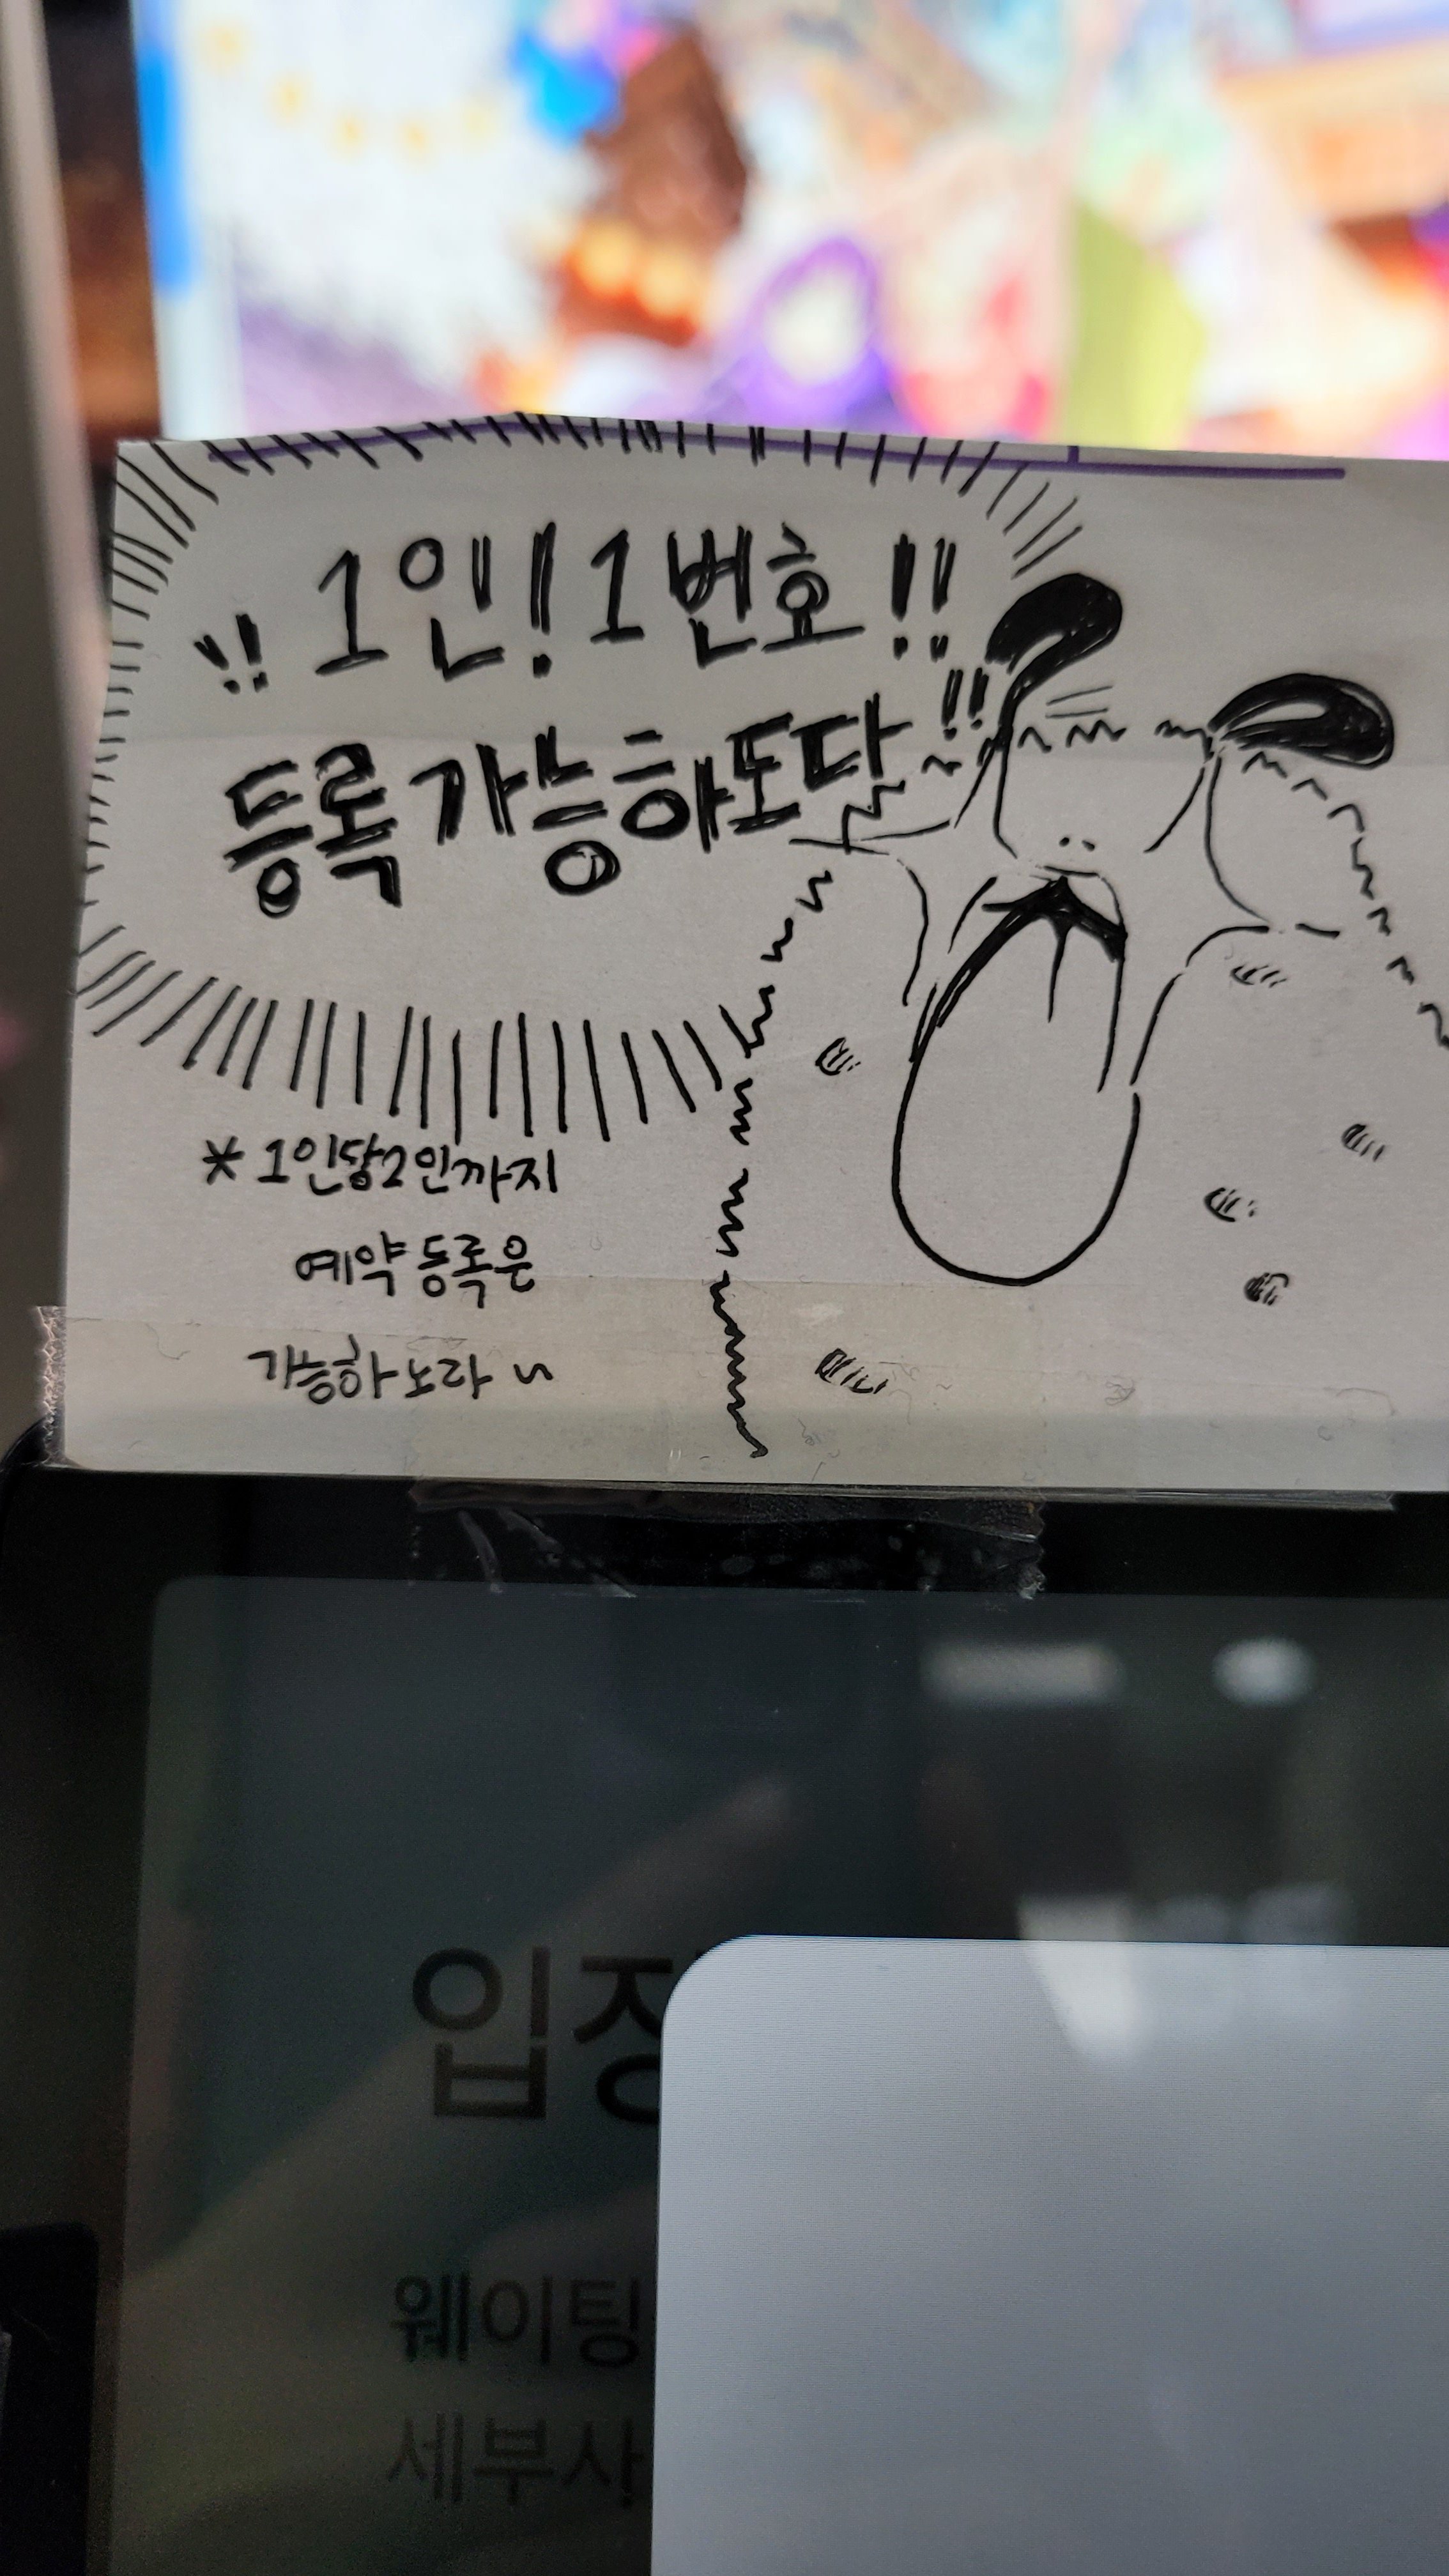 !! 1인! 1번호!!
등록 가능하도다!!
* 1인당 2인까지
예약 등록은
가능하노라~
입장
웨이팅
세부사